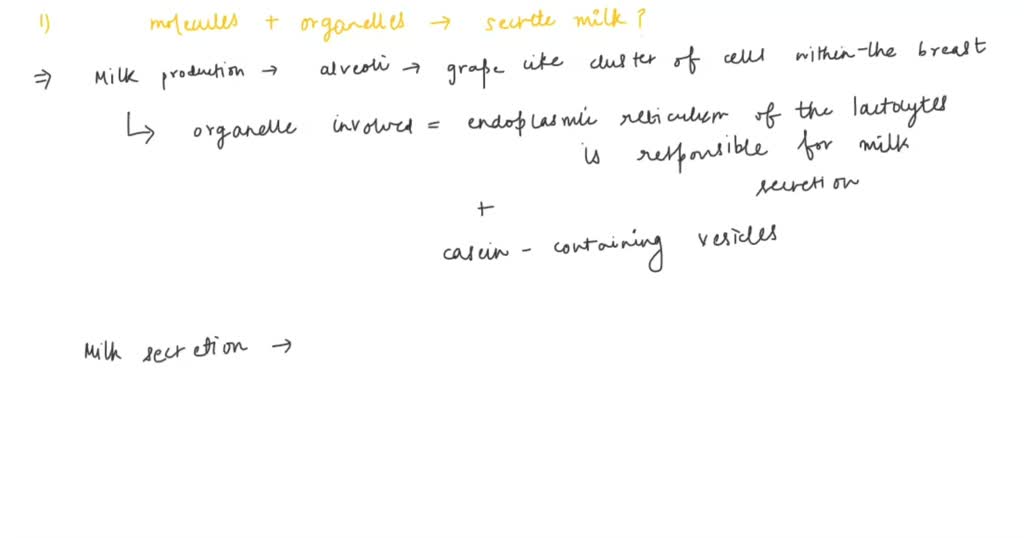 1) molecules + organelles → secrete milk?
⇒ Milk production → alveoli → grape like cluster of cells within-the breast
↳ organelle involved = endoplasmic reticulum of the lactolytes
is responsible for milk
secretion
+
casein - containing vesicles
Milk secretion →